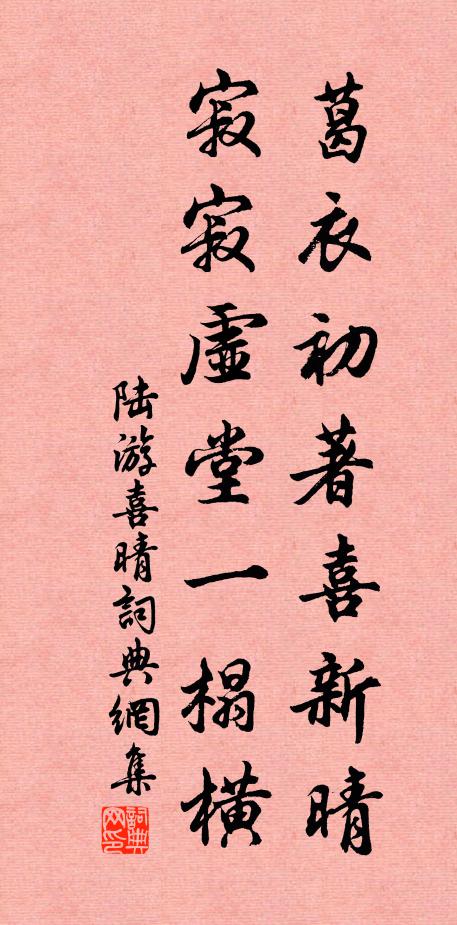 葛衣初著喜新晴
寂寂虛堂一榻橫
陆游喜晴詞典網集
詞典网印